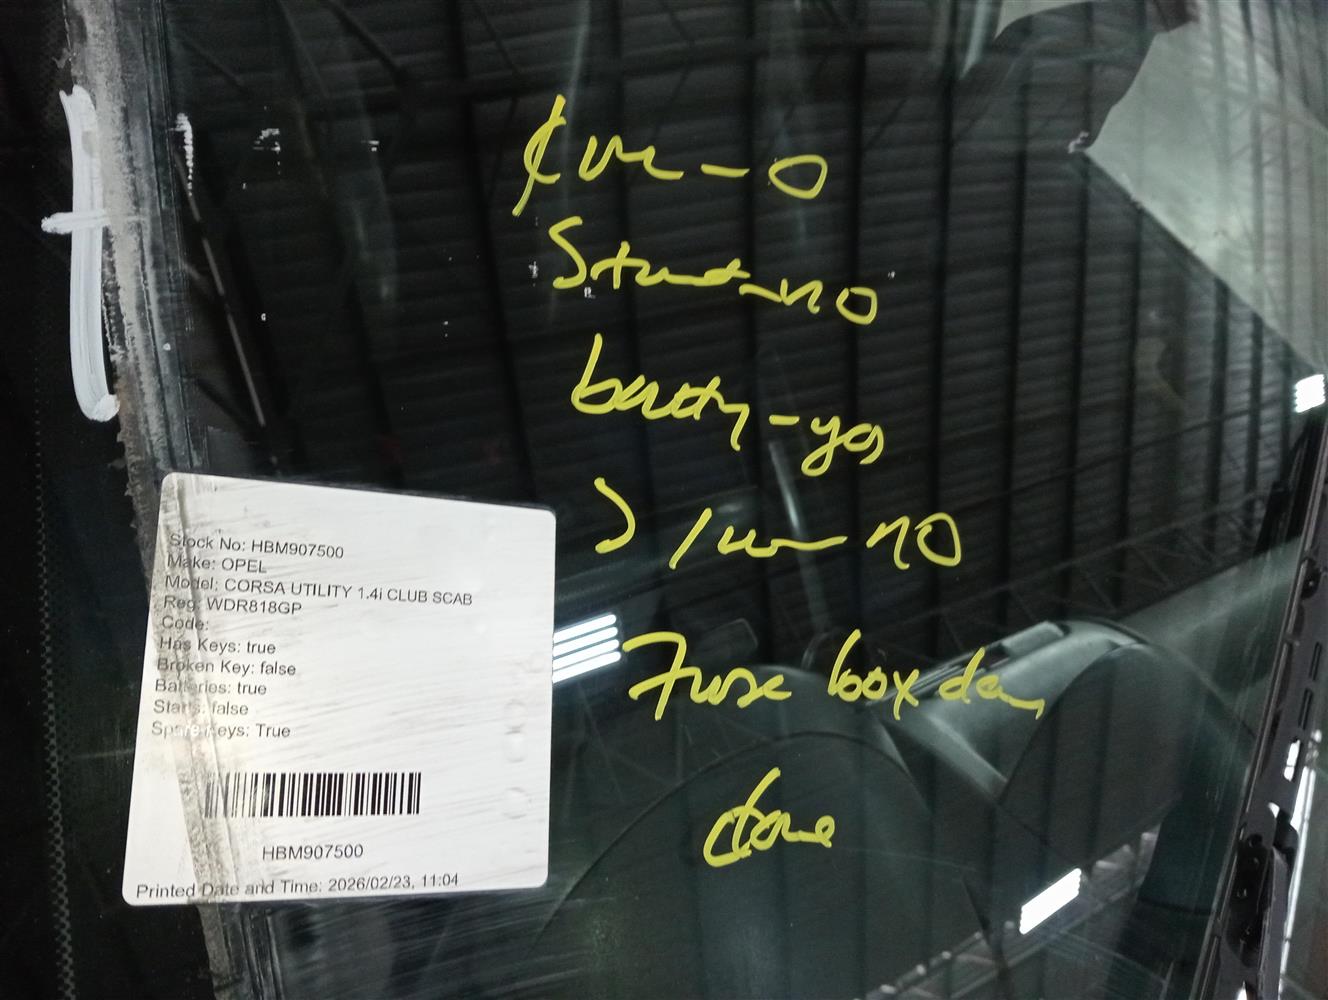 Start-no
battery-yes
no
Fuse box dam
done
Stock No: HBM907500
Make: OPEL
Model: CORSA UTILITY 1.4i CLUB SCAB
Reg: WDR818GP
Code:
Has Keys: true
Broken Key: false
Batteries: true
Starts: false
Spare Keys: True
HBM907500
Printed Date and Time: 2026/02/23, 11:04